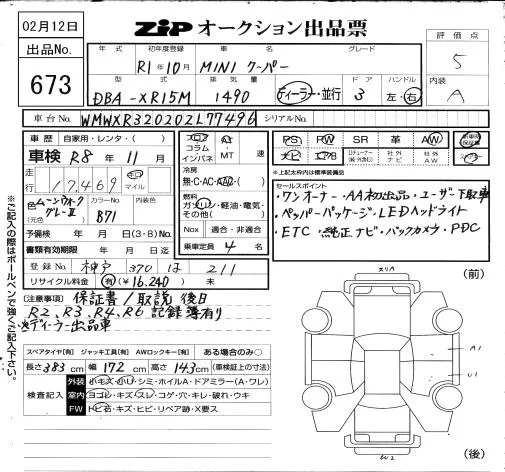 02月12日
ZiP オークション出品票
出品No.
673
評価点
5
内装
A
年式 初年度登録 車名 グレード
R1年10月 MINI クーパー
型式 排気量 ドア ハンドル
DBA-XR15M 1490 ディーラー・並行 3 左・右
車台No. WMWXR320202L77496 シリアルNo.
車歴 自家用・レンタ・( )
車検 R8年 11月
走行 17,469 km マイル
色 ムーンウォークグレーII (元色) カラーNo. B71 内装色
予備検 年 月 日 (3・8)No.
書類有効期限 年 月 日
登録No. 神戸 370 は 211
リサイクル料金 有(¥16,240) 未
フロア コラム インパネ AT・MT 速
冷房 無・C・AC・AAC・( )
燃料 ガソリン・軽油・電気・その他( )
Nox 適合・非適合
乗車定員 4 名
PS PW SR 革 AW
ナビ エアB
社外ナビ 社外AW
新車時保証書
※上記太枠内は標準装備品
セールスポイント
・ワンオーナー・AA初出品・ユーザー下取車
・ペッパーパッケージ・LEDヘッドライト
・ETC・純正ナビ・バックカメラ・PDC
【注意事項】 保証書/取説 後日
R2、R3、R4、R6 記録簿有り
※ディーラー出品車
※ご記入の際はボールペンで強くご記入下さい。
スペアタイヤ[有] ジャッキ工具[有] AWロックキー[有] ある場合のみ○
長さ 383cm 幅 172cm 高さ 143cm (車検証上の寸法)
検査記入
外装 小キズ・小凹・シミ・ホイルA・ドアミラー(A・ワレ)
室内 ヨゴレ・キズ・スレ・コゲ・穴・キレ・破れ・ウキ
FW トビ石・キズ・ヒビ・リペア跡・X要ス
(前)
A1
U1
W2
(後)